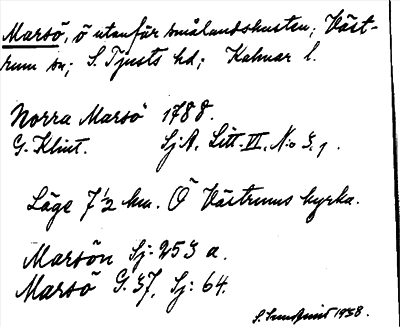 Marsö, ö utanför smålandskusten; Väst-
rum sn; S. Tjusts hd; Kalmar l.
Norra Marsö 1788.
G. Klint. SjA. Litt. VI, No 3, 1.
Läge 7 1/2 km. Ö Västrums kyrka.
Marsön Sj: 253 a.
Marsö G. 37, Sj: 64.
S. Sundquist 1938.